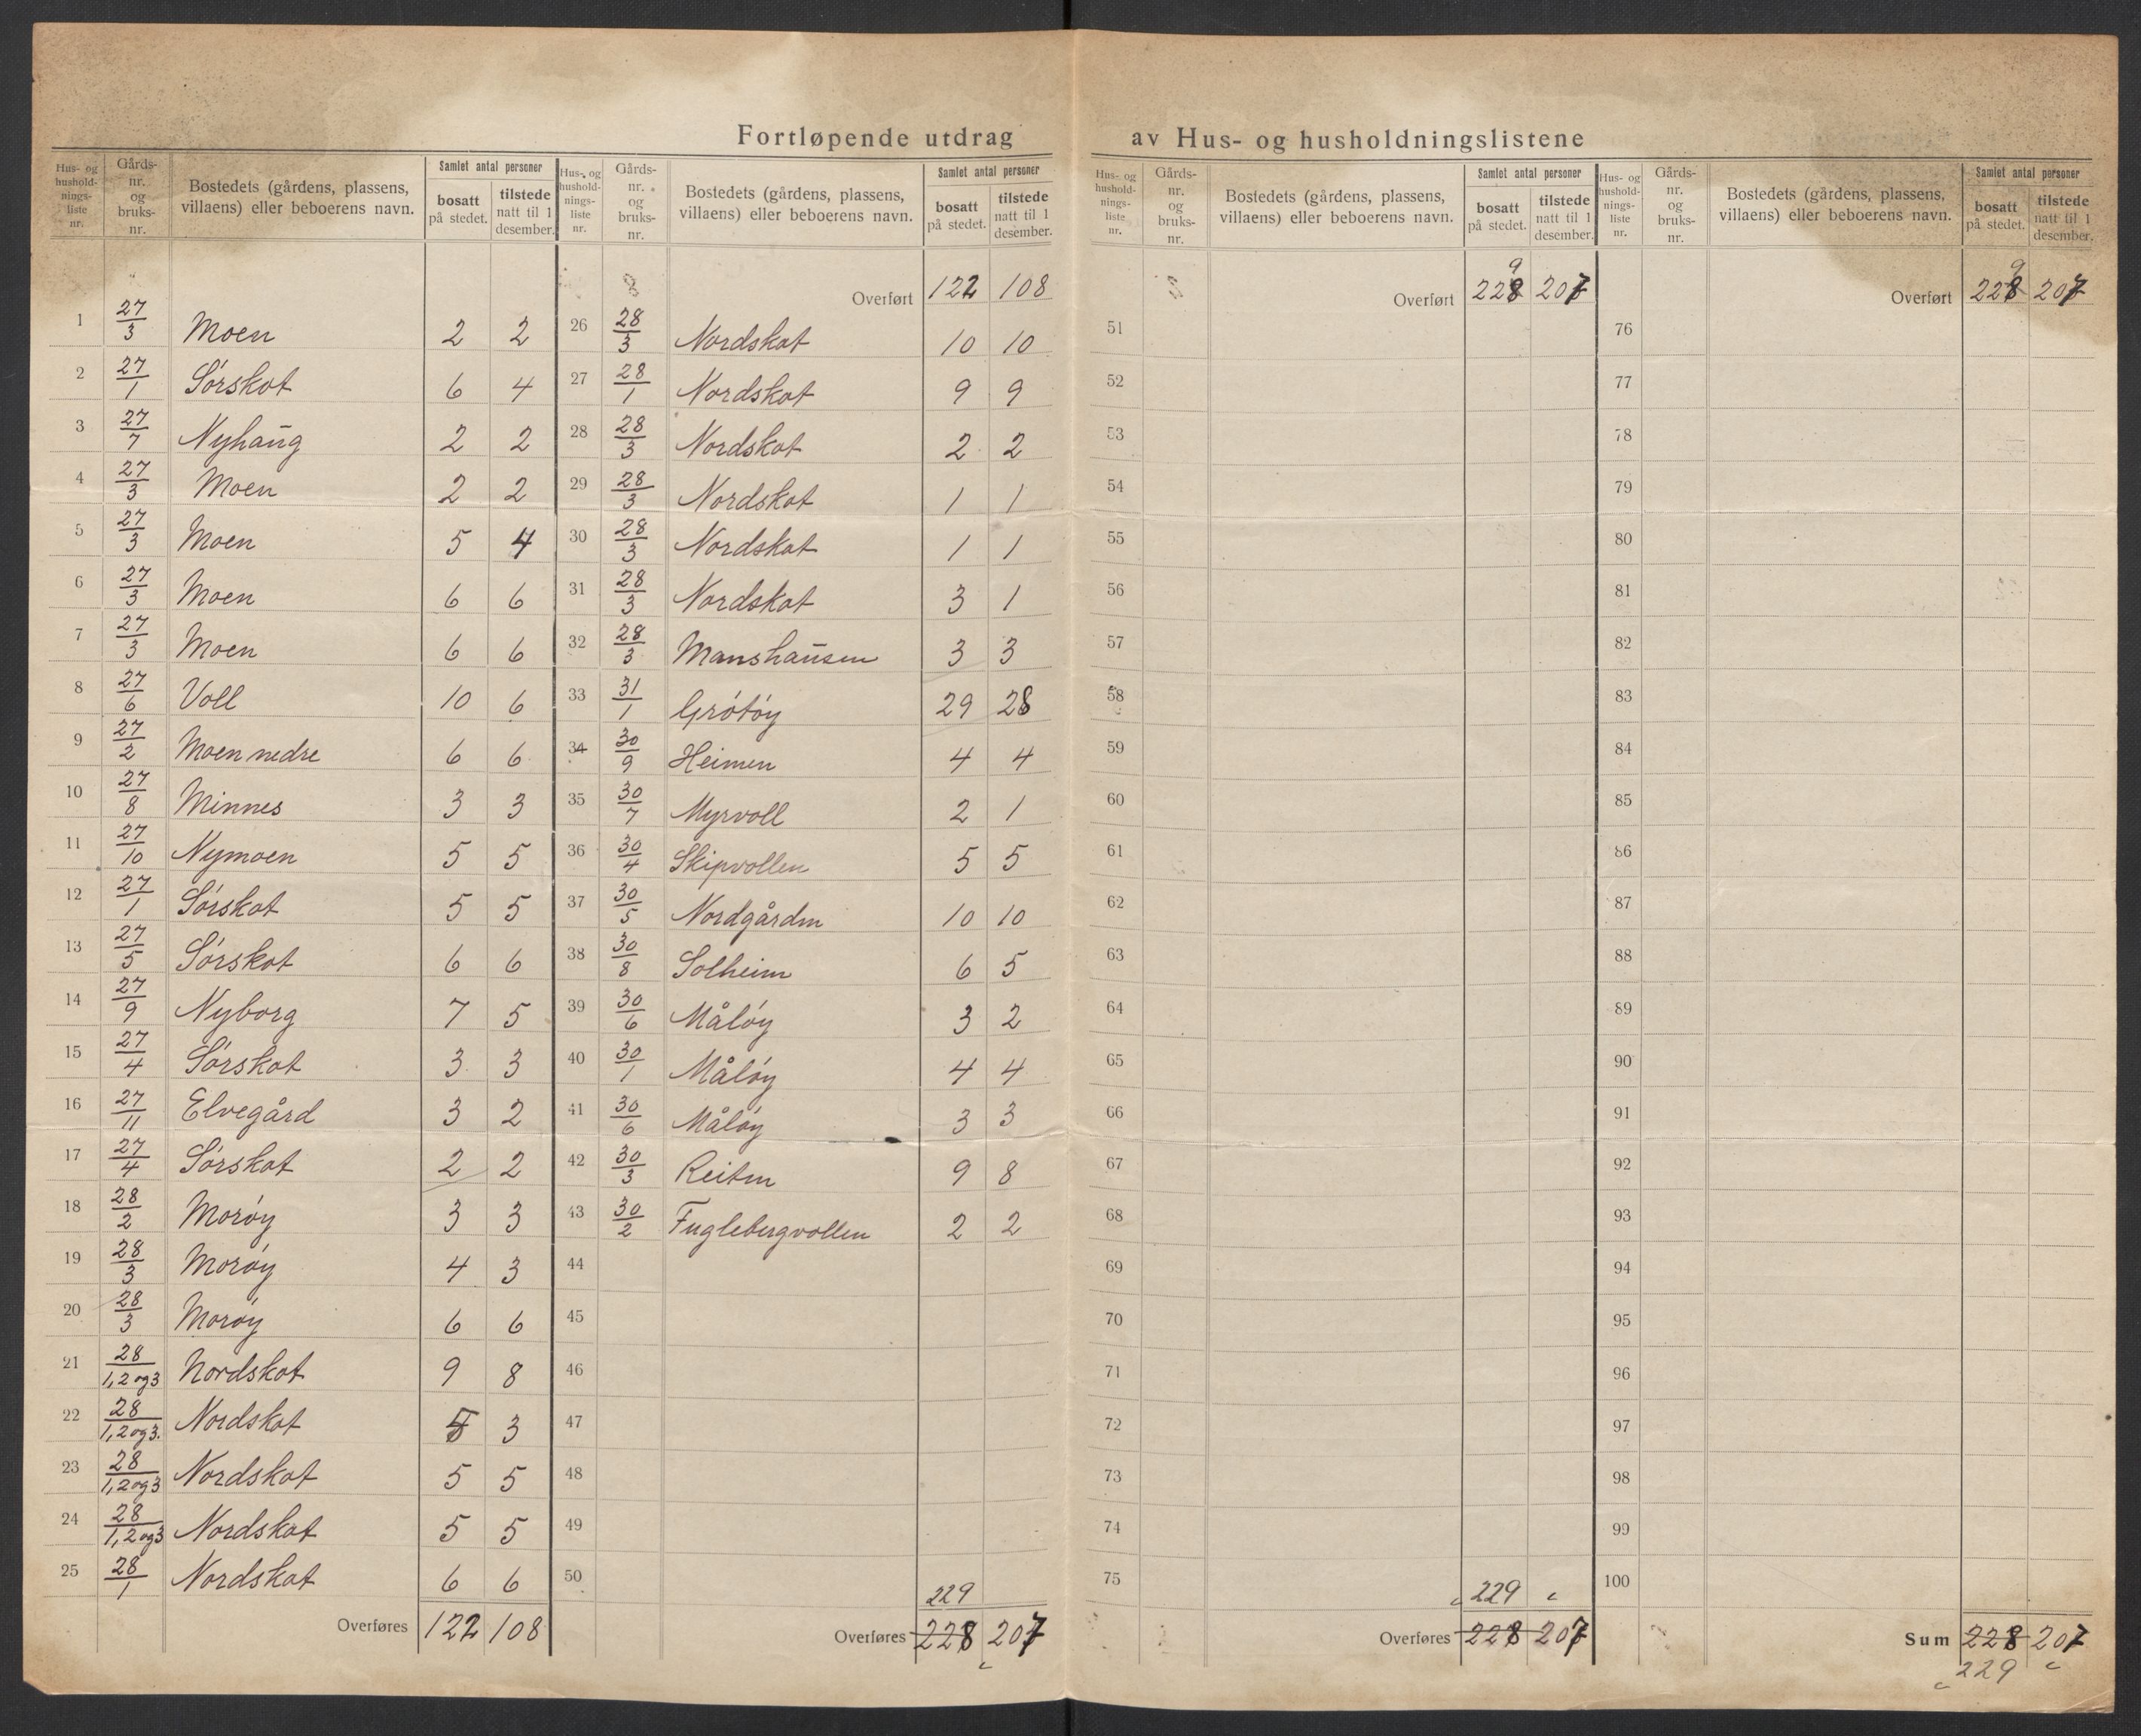 Fortløpende utdrag av Hus- og husholdningslistene
Hus- og hushold- nings- liste nr. | Gårds- nr. og bruks- nr. | Bostedets (gårdens, plassens, villaens) eller beboerens navn. | Samlet antal personer bosatt på stedet. | tilstede natt til 1 desember.
1 27/3 Moen 2 2
2 27/1 Sørskot 6 4
3 27/7 Nyhaug 2 2
4 27/3 Moen 2 2
5 27/3 Moen 5 4
6 27/3 Moen 6 6
7 27/3 Moen 6 6
8 27/6 Voll 10 6
9 27/2 Moen nedre 6 6
10 27/8 Minnes 3 3
11 27/10 Nymoen 5 5
12 27/1 Sørskot 5 5
13 27/5 Sørskot 6 6
14 27/9 Nyborg 7 5
15 27/4 Sørskot 3 3
16 27/11 Elvegård 3 2
17 27/4 Sørskot 2 2
18 28/2 Morøy 3 3
19 28/3 Morøy 4 3
20 28/3 Morøy 6 6
21 28/1,2 og 3 Nordskot 9 8
22 28/1,2 og 3. Nordskot 5 3
23 28/1,2 og 3 Nordskot 5 5
24 28/1,2 og 3 Nordskot 5 5
25 28/1 Nordskot 6 6
Overføres 122 108
Hus- og hushold- nings- liste nr. | Gårds- nr. og bruks- nr. | Bostedets (gårdens, plassens, villaens) eller beboerens navn. | Samlet antal personer bosatt på stedet. | tilstede natt til 1 desember.
Overført 122 108
26 28/3 Nordskot 10 10
27 28/1 Nordskot 9 9
28 28/3 Nordskot 2 2
29 28/3 Nordskot 1 1
30 28/3 Nordskot 1 1
31 28/3 Nordskot 3 1
32 28/3 Manshausen 3 3
33 31/1 Grøtøy 29 28
34 30/9 Heimen 4 4
35 30/7 Myrvoll 2 1
36 30/4 Skipvollen 5 5
37 30/5 Nordgården 10 10
38 30/8 Solheim 6 5
39 30/6 Måløy 3 2
40 30/1 Måløy 4 4
41 30/6 Måløy 3 3
42 30/3 Reiten 9 8
43 30/2 Fuglebergvollen 2 2
44
45
46
47
48
49
50
229
Overføres 228 207
Hus- og hushold- nings- liste nr. | Gårds- nr. og bruks- nr. | Bostedets (gårdens, plassens, villaens) eller beboerens navn. | Samlet antal personer bosatt på stedet. | tilstede natt til 1 desember.
9
Overført 228 207
51
52
53
54
55
56
57
58
59
60
61
62
63
64
65
66
67
68
69
70
71
72
73
74
75
229
Overføres 228 207
Hus- og hushold- nings- liste nr. | Gårds- nr. og bruks- nr. | Bostedets (gårdens, plassens, villaens) eller beboerens navn. | Samlet antal personer bosatt på stedet. | tilstede natt til 1 desember.
9
Overført 228 207
76
77
78
79
80
81
82
83
84
85
86
87
88
89
90
91
92
93
94
95
96
97
98
99
100
Sum 228 207
229